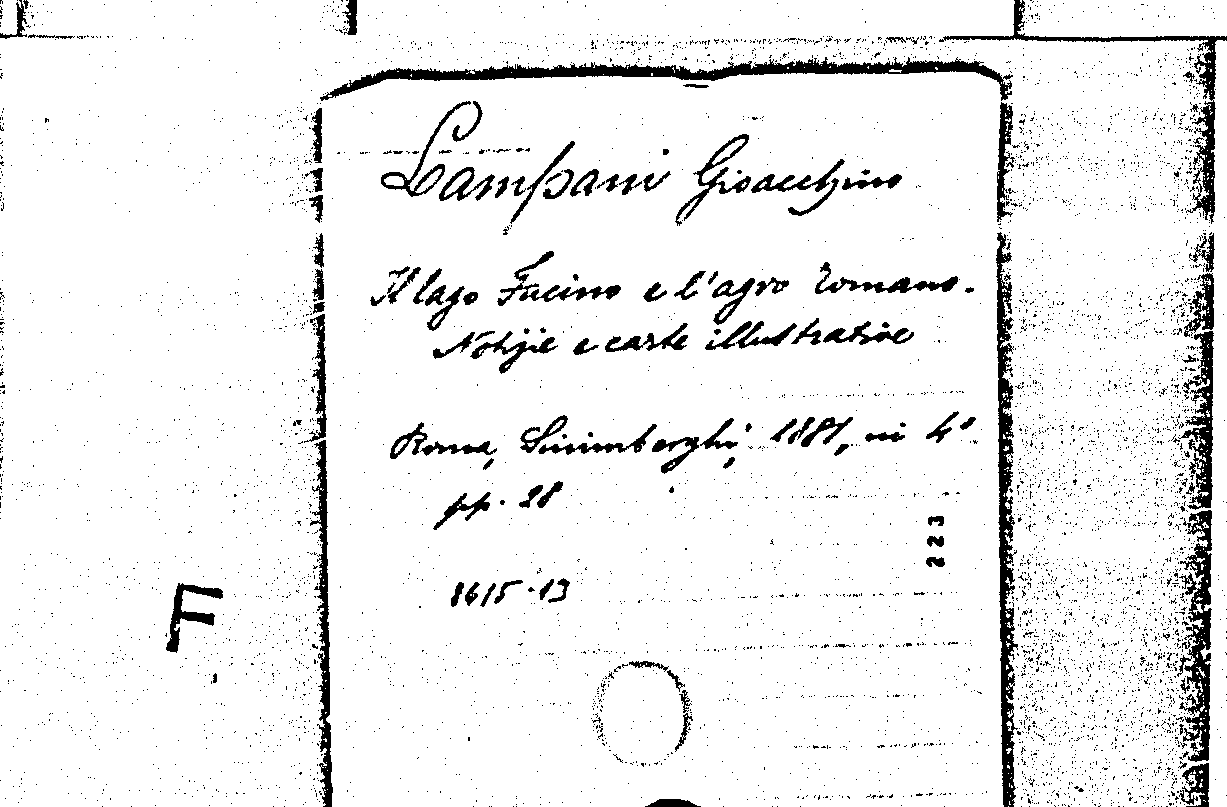 Lampani Gioacchino
Il lago Fucino e l'agro romano.
Notizie e carte illustrative
Roma, Sinimberghi, 1881, in 4°
pp. 28
1615-13
223
F